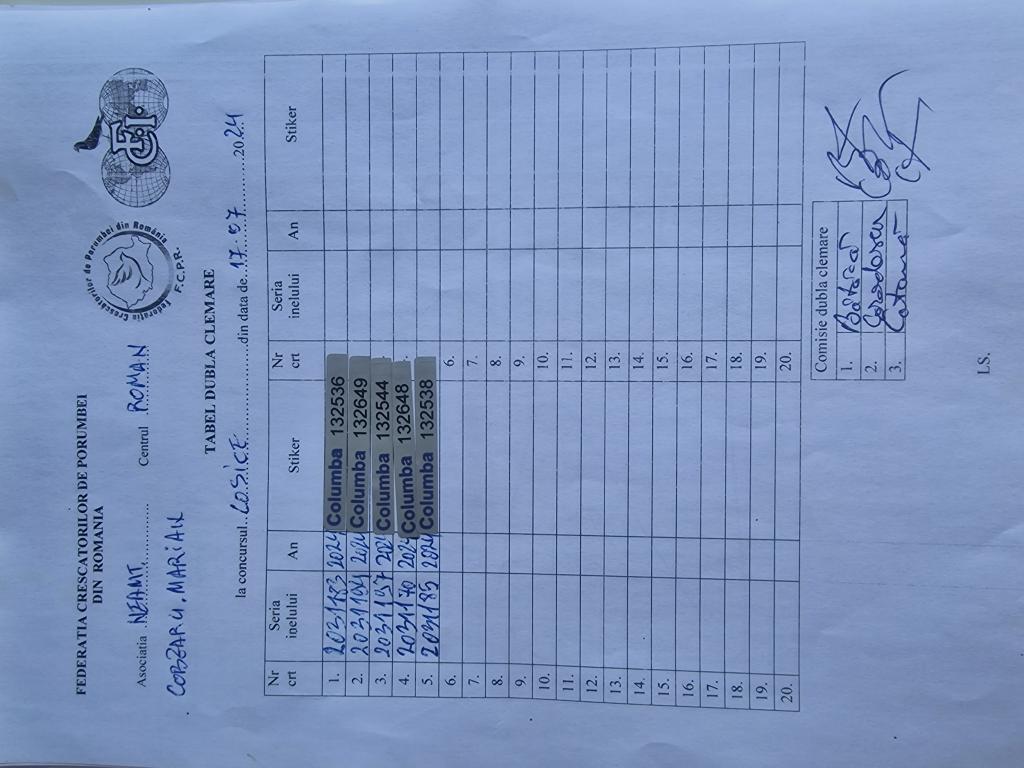 FEDERATIA CRESCATORILOR DE PORUMBEI
DIN ROMANIA
Federatia Crescătorilor de Porumbei din România
F.C.P.R.
FCI
Asociatia NEAMT Centrul ROMAN
COBZARU MARIAN
TABEL DUBLA CLEMARE
la concursul COSICE din data de 17.07.2024
Nr crt Seria inelului An Stiker Nr crt Seria inelului An Stiker
1. 2031183 2024 Columba 132536
2. 2031194 2024 Columba 132649
3. 2031197 2024 Columba 132544
4. 2031170 2024 Columba 132648
5. 2031185 2024 Columba 132538
6. 6.
7. 7.
8. 8.
9. 9.
10. 10.
11. 11.
12. 12.
13. 13.
14. 14.
15. 15.
16. 16.
17. 17.
18. 18.
19. 19.
20. 20.
Comisie dubla clemare
1.
2.
3.
LS.